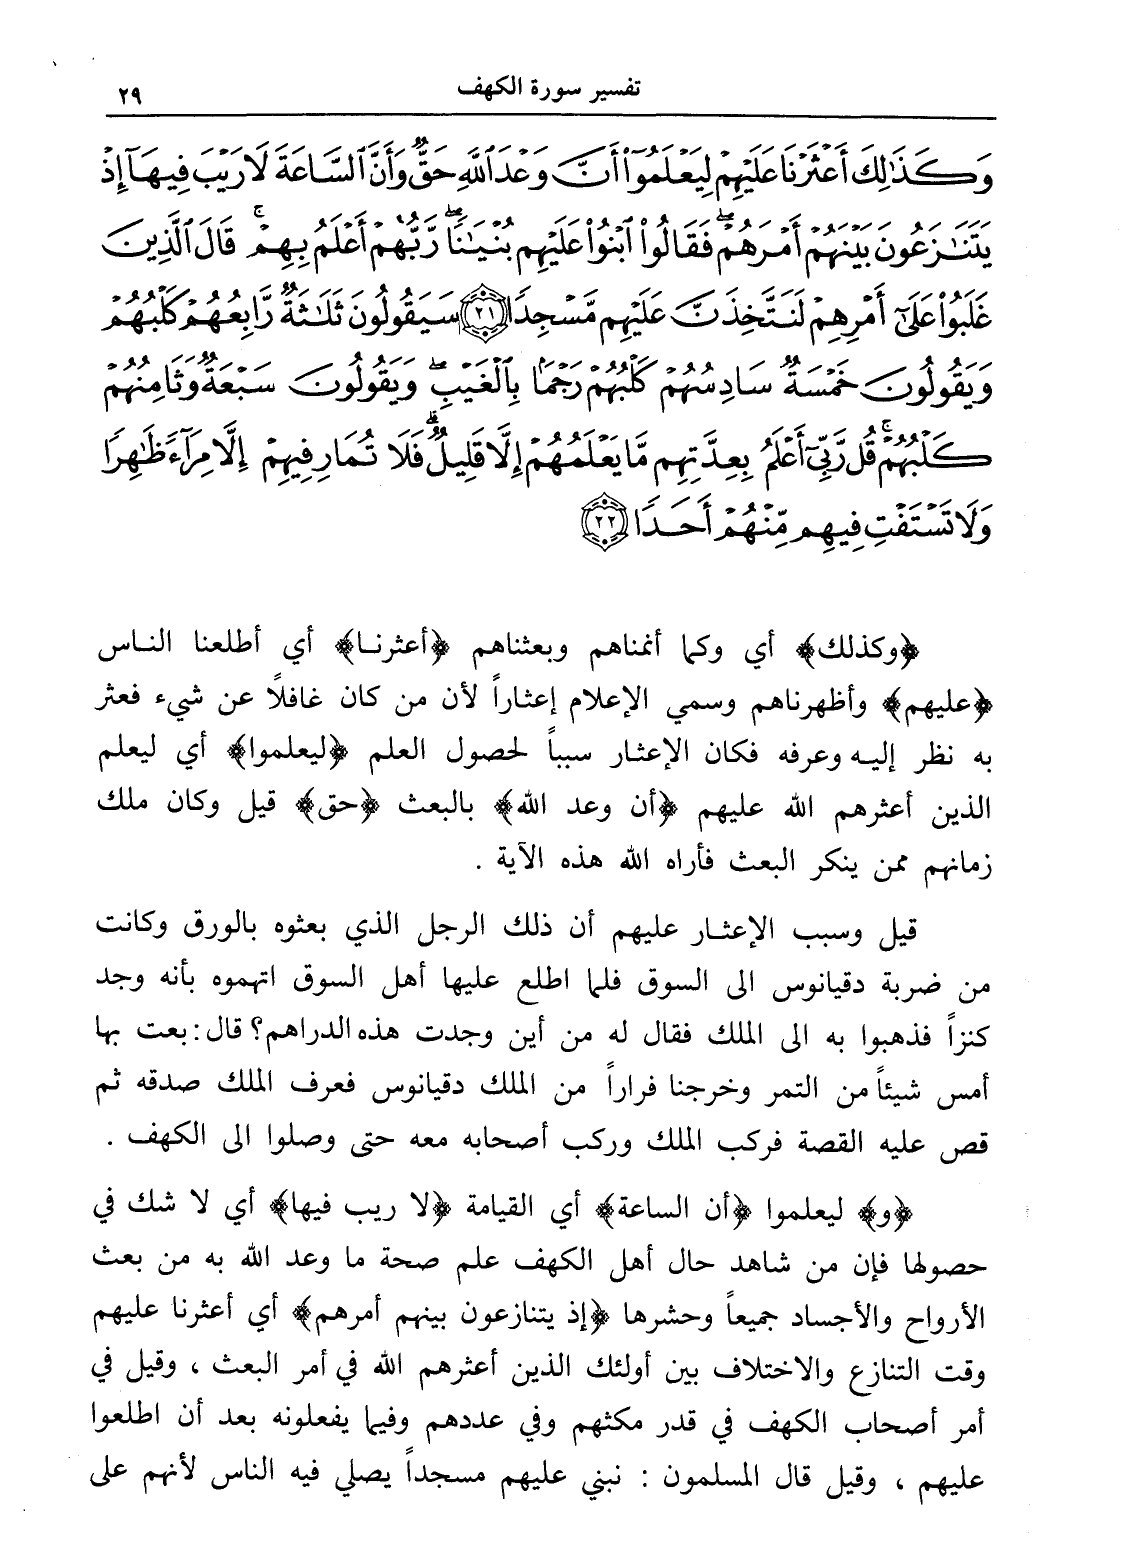 تفسير سورة الكهف ٢٩
وَكَذَٰلِكَ أَعْثَرْنَا عَلَيْهِمْ لِيَعْلَمُوٓا۟ أَنَّ وَعْدَ ٱللَّهِ حَقٌّ وَأَنَّ ٱلسَّاعَةَ لَا رَيْبَ فِيهَآ إِذْ
يَتَنَٰزَعُونَ بَيْنَهُمْ أَمْرَهُمْ ۖ فَقَالُوا۟ ٱبْنُوا۟ عَلَيْهِم بُنْيَٰنًا ۖ رَّبُّهُمْ أَعْلَمُ بِهِمْ ۚ قَالَ ٱلَّذِينَ
غَلَبُوا۟ عَلَىٰٓ أَمْرِهِمْ لَنَتَّخِذَنَّ عَلَيْهِم مَّسْجِدًا ٢١ سَيَقُولُونَ ثَلَٰثَةٌ رَّابِعُهُمْ كَلْبُهُمْ
وَيَقُولُونَ خَمْسَةٌ سَادِسُهُمْ كَلْبُهُمْ رَجْمًۢا بِٱلْغَيْبِ ۖ وَيَقُولُونَ سَبْعَةٌ وَثَامِنُهُمْ
كَلْبُهُمْ ۚ قُل رَّبِّىٓ أَعْلَمُ بِعِدَّتِهِم مَّا يَعْلَمُهُمْ إِلَّا قَلِيلٌ ۗ فَلَا تُمَارِ فِيهِمْ إِلَّا مِرَآءً ظَٰهِرًا
وَلَا تَسْتَفْتِ فِيهِم مِّنْهُمْ أَحَدًا ٢٢
﴿وكذلك﴾ أي وكما أنمناهم وبعثناهم ﴿أعثرنا﴾ أي أطلعنا الناس
﴿عليهم﴾ وأظهرناهم وسمي الإعلام إعثاراً لأن من كان غافلاً عن شيء فعثر
به نظر إليه وعرفه فكان الإعثار سبباً لحصول العلم ﴿ليعلموا﴾ أي ليعلم
الذين أعثرهم الله عليهم ﴿أن وعد الله﴾ بالبعث ﴿حق﴾ قيل وكان ملك
زمانهم ممن ينكر البعث فأراه الله هذه الآية .
قيل وسبب الإعثار عليهم أن ذلك الرجل الذي بعثوه بالورق وكانت
من ضربة دقيانوس الى السوق فلما اطلع عليها أهل السوق اتهموه بأنه وجد
كنزاً فذهبوا به الى الملك فقال له من أين وجدت هذه الدراهم؟ قال : بعت بها
أمس شيئاً من التمر وخرجنا فراراً من الملك دقيانوس فعرف الملك صدقه ثم
قص عليه القصة فركب الملك وركب أصحابه معه حتى وصلوا الى الكهف .
﴿و﴾ ليعلموا ﴿أن الساعة﴾ أي القيامة ﴿لا ريب فيها﴾ أي لا شك في
حصولها فإن من شاهد حال أهل الكهف علم صحة ما وعد الله به من بعث
الأرواح والأجساد جميعاً وحشرها ﴿إذ يتنازعون بينهم أمرهم﴾ أي أعثرنا عليهم
وقت التنازع والاختلاف بين أولئك الذين أعثرهم الله في أمر البعث ، وقيل في
أمر أصحاب الكهف في قدر مكثهم وفي عددهم وفيما يفعلونه بعد أن اطلعوا
عليهم ، وقيل قال المسلمون : نبني عليهم مسجداً يصلي فيه الناس لأنهم على